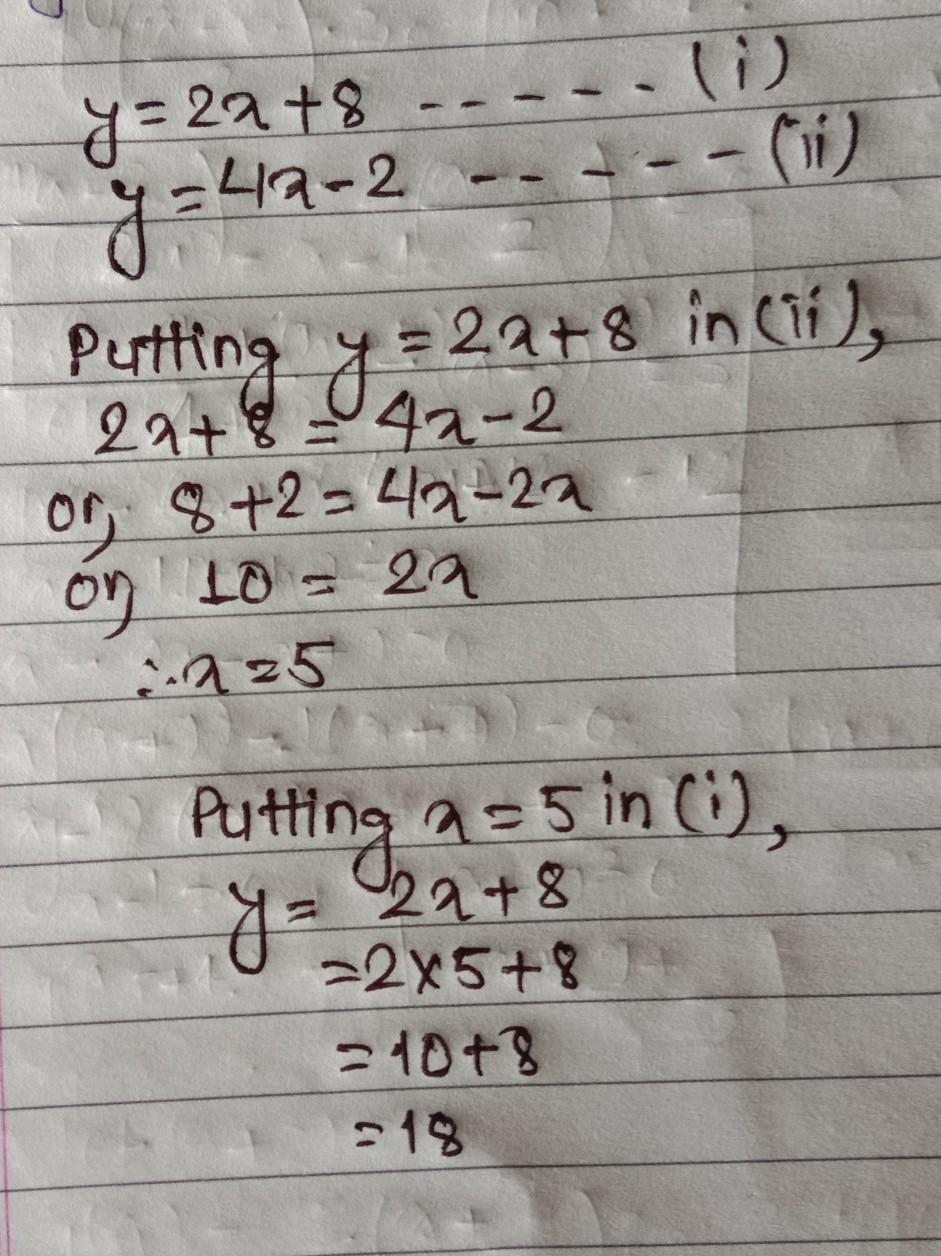 y = 2x + 8 ------ (i)
y = 4x - 2 ------ (ii)
Putting y = 2x + 8 in (ii),
2x + 8 = 4x - 2
or, 8 + 2 = 4x - 2x
or, 10 = 2x
∴ x = 5
Putting x = 5 in (i),
y = 2x + 8
= 2 × 5 + 8
= 10 + 8
= 18